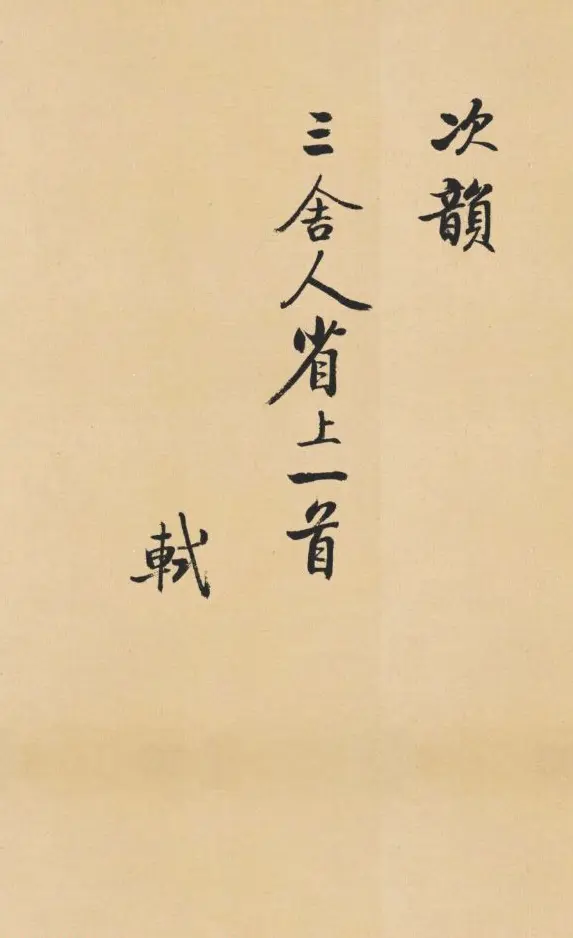 次韻
三舍人省上一首
軾